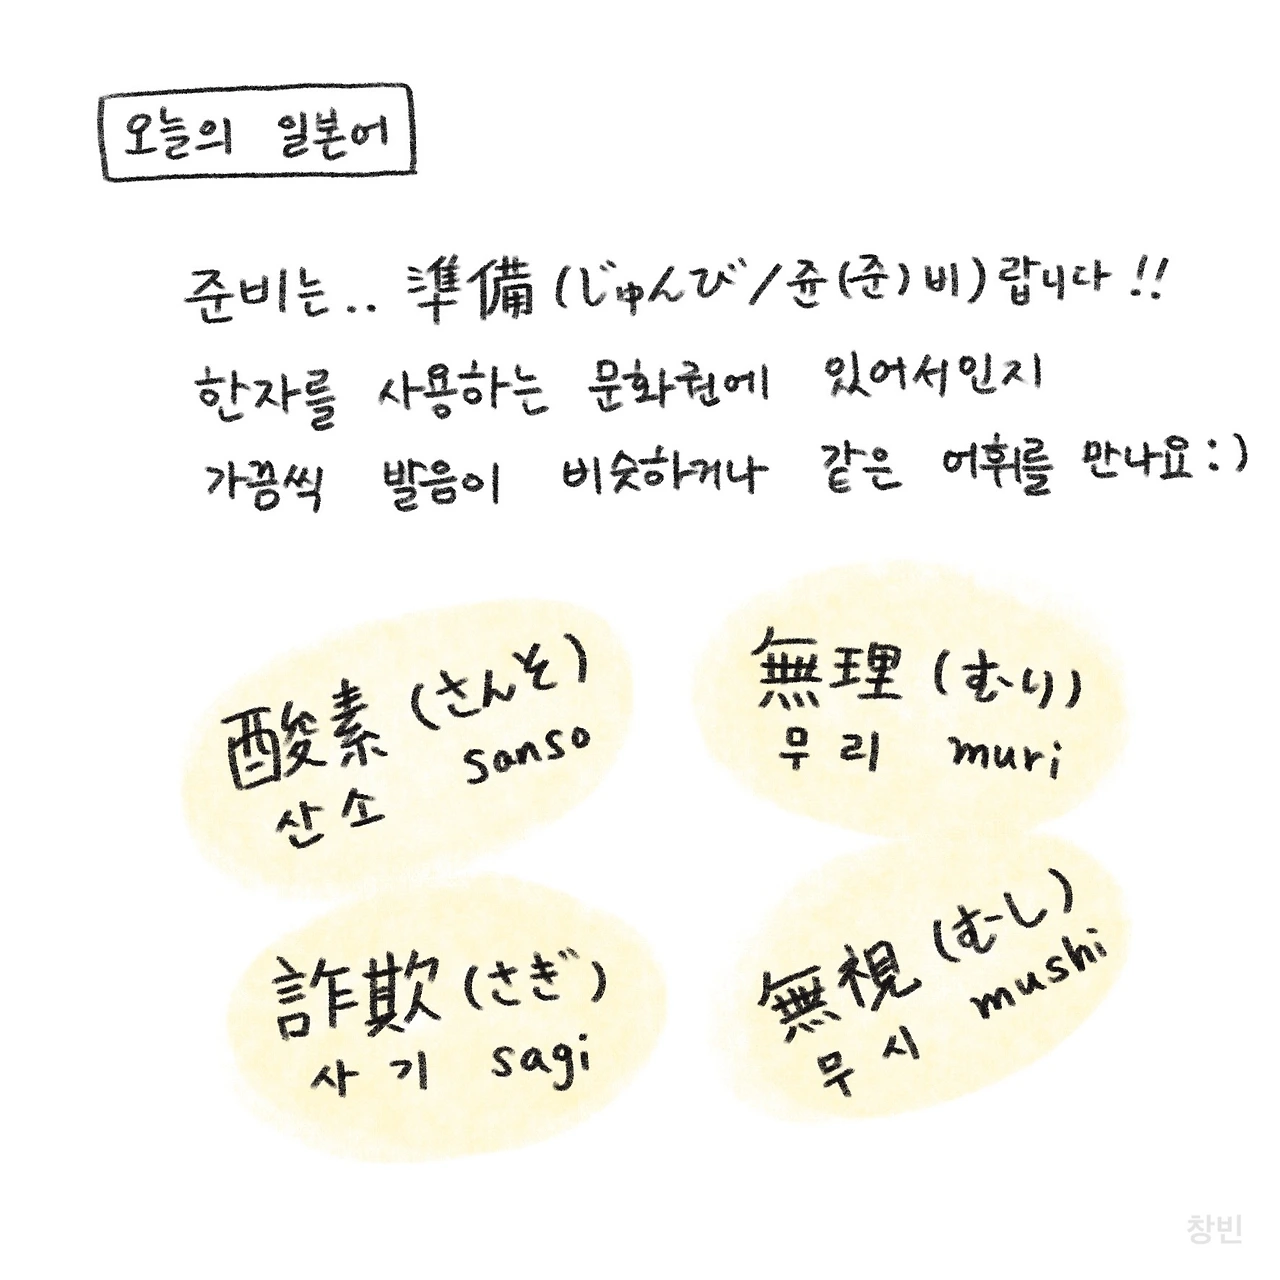 오늘의 일본어
준비는.. 準備 (じゅんび/쥰(준)비)랍니다!!
한자를 사용하는 문화권에 있어서인지
가끔씩 발음이 비슷하거나 같은 어휘를 만나요:)
酸素 (さんそ)
산소 sanso
無理 (むり)
무리 muri
詐欺 (さぎ)
사기 sagi
無視 (むし)
무시 mushi
창빈